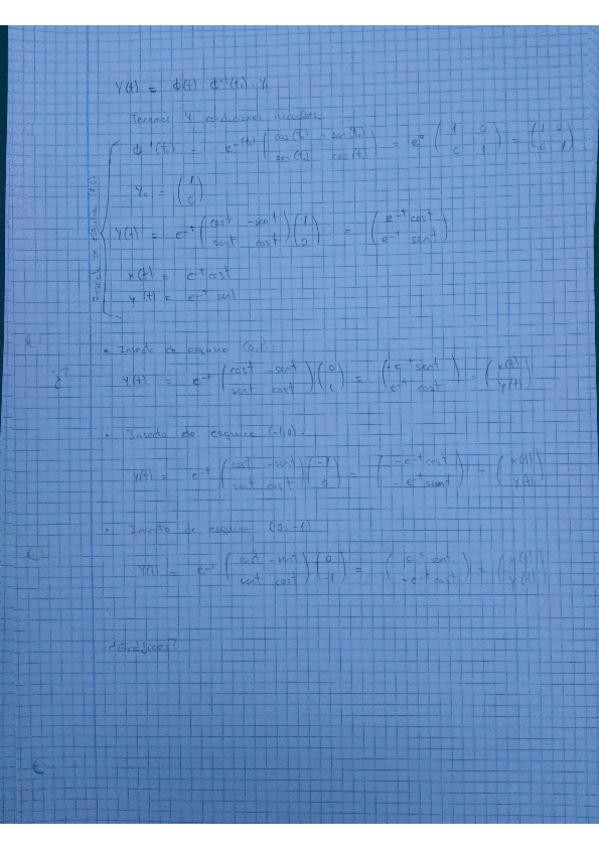 Y(t) = ϕ(t) ϕ⁻¹(t₀) Y₀
Tenemos 4 condiciones iniciales
ϕ⁻¹(t₀) = e^-(t₀) ( cos(t₀) -sen(t₀) ; sen(t₀) cos(t₀) ) = e⁰ ( 1 0 ; 0 1 ) = ( 1 0 ; 0 1 )
Y₀ = ( 1 ; 0 )
Y(t) = e^-t ( cost -sent ; sent cost ) ( 1 ; 0 ) = ( e^-t cost ; e^-t sent )
x(t) = e^-t cost
y(t) = e^-t sent
• Insecto de esquina (0,1):
Y(t) = e^-t ( cost -sent ; sent cost ) ( 0 ; 1 ) = ( -e^-t sent ; e^-t cost ) = ( x(t) ; y(t) )
• Insecto de esquina (-1,0):
Y(t) = e^-t ( cost -sent ; sent cost ) ( -1 ; 0 ) = ( -e^-t cost ; -e^-t sent ) = ( x(t) ; y(t) )
• Insecto de esquina (0,-1)
Y(t) = e^-t ( cost -sent ; sent cost ) ( 0 ; -1 ) = ( e^-t sent ; -e^-t cost ) = ( x(t) ; y(t) )
¿Gráficos?